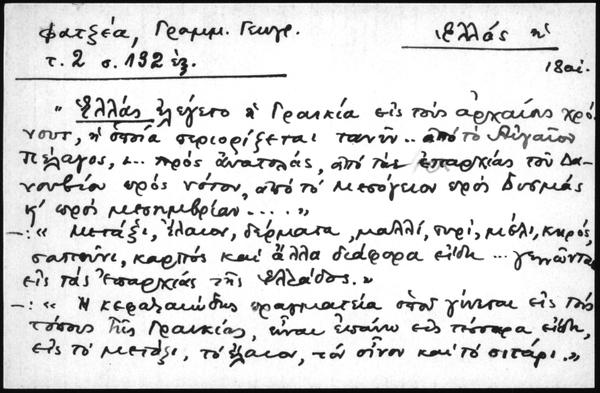 Φατζέα, Γραμμ. Γεωγρ.
Ἑλλάς ἡ
τ. 2 σ. 192 ἑξ.
18 αἰ.
" Ἑλλάς ἐλέγετο ἡ Γραικία εἰς τούς ἀρχαίους χρό-
νους, ἡ ὁποία περιορίζεται τανῦν .. ἀπό τό Αἰγαῖον
Πέλαγος, ... πρός ἀνατολάς, ἀπό τάς ἐπαρχίας τοῦ Δα-
νουβίου πρός νότον, ἀπό τό μεσόγειον πρός δυσμάς
κ' πρός μεσημβρίαν .... "
—:" Μετάξι, ἔλαιον, δέρματα, μαλλί, τυρί, μέλι, κηρός,
σαπούνι, καρπός καί ἄλλα διάφορα εἴδη ... γεννῶνται
εἰς τάς ἐπαρχίας τῆς Ἑλλάδος."
—:" Ἡ κεφαλαιώδης πραγματεία ὁποῦ γίνεται εἰς τούς
τόπους τῆς Γραικίας, εἶναι ἐπάνω εἰς τέσσαρα εἴδη,
εἰς τό μετάξι, τό ἔλαιον, τόν οἶνον καί τό σιτάρι."